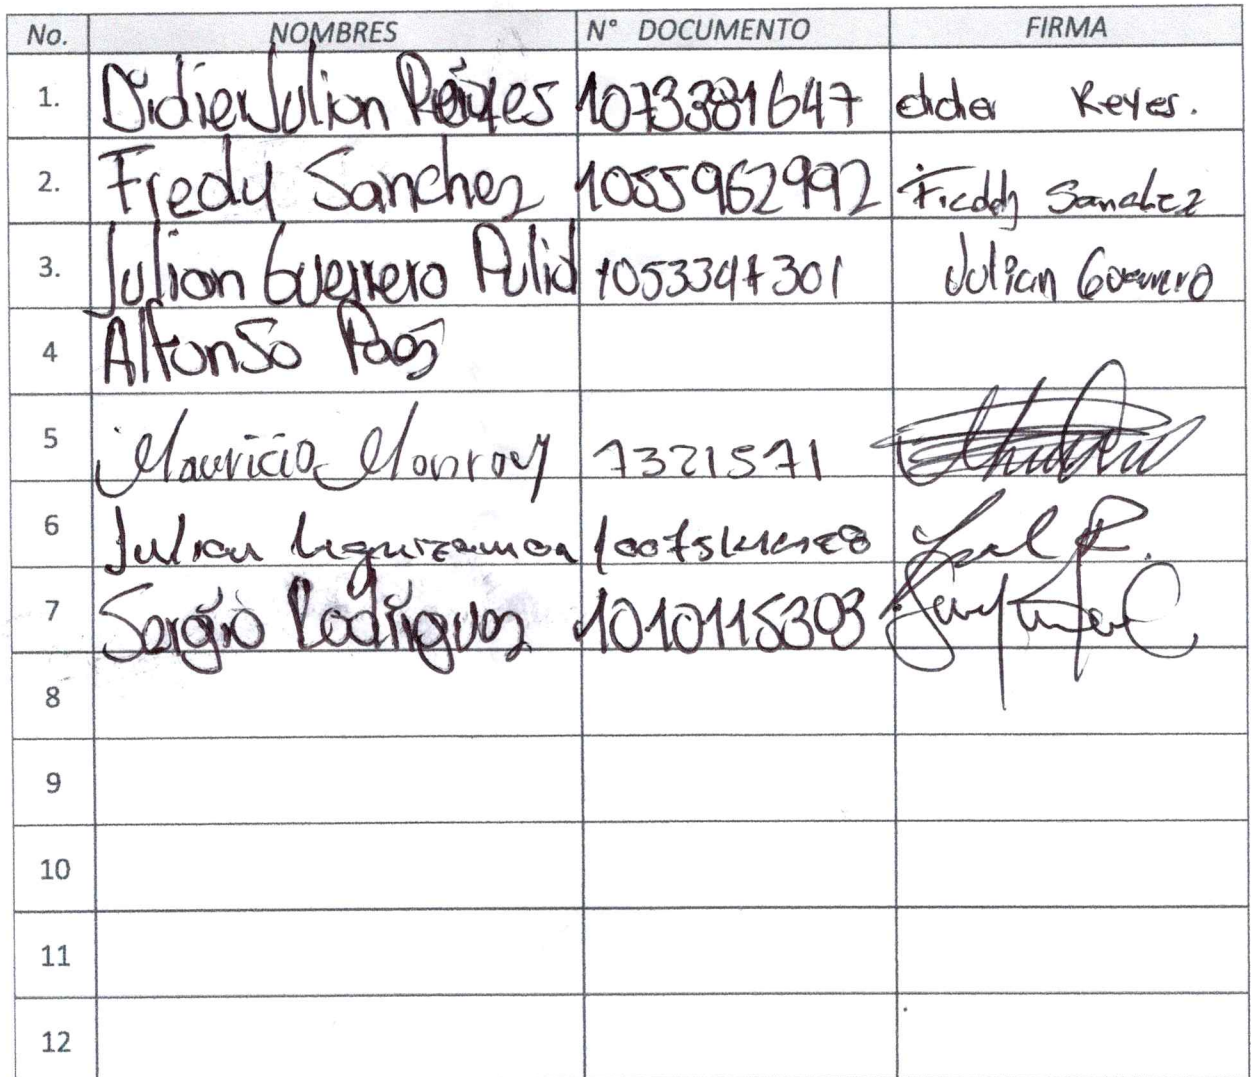 No. NOMBRES N° DOCUMENTO FIRMA
1. Didier Julian Reyes 1073381647 didier Reyes.
2. Fredy Sanchez 1055962992 Freddy Sanchez
3. Julian Guerrero Pulid 1053347301 Julian Guerrero
4 Alfonso Paez
5 Mauricio Monroy 7321571
6 Julian Leguizamon
7 Sergio Rodriguez 1010115303
8
9
10
11
12